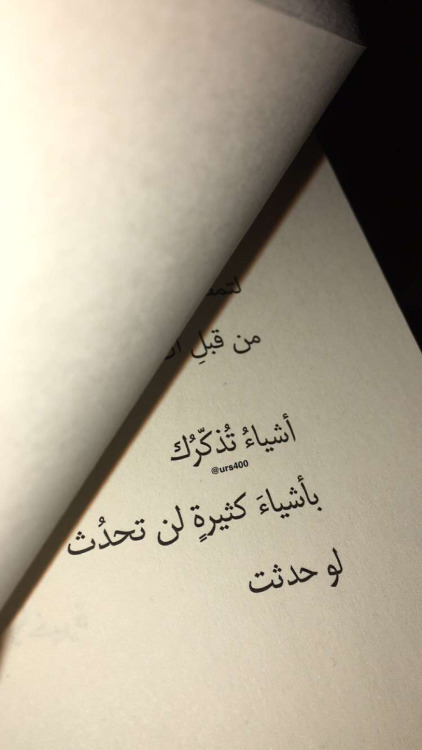 من قبلِ
أشياءُ تُذكّرُك
@urs400
بأشياءَ كثيرةٍ لن تحدُث
لو حدثت